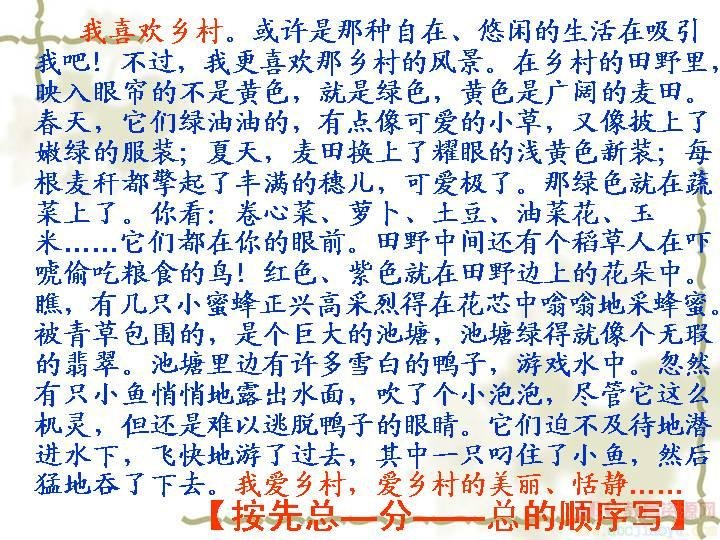 我喜欢乡村。或许是那种自在、悠闲的生活在吸引
我吧！不过，我更喜欢那乡村的风景。在乡村的田野里，
映入眼帘的不是黄色，就是绿色，黄色是广阔的麦田。
春天，它们绿油油的，有点像可爱的小草，又像披上了
嫩绿的服装；夏天，麦田换上了耀眼的浅黄色新装；每
根麦秆都擎起了丰满的穗儿，可爱极了。那绿色就在蔬
菜上了。你看：卷心菜、萝卜、土豆、油菜花、玉
米……它们都在你的眼前。田野中间还有个稻草人在吓
唬偷吃粮食的鸟！红色、紫色就在田野边上的花朵中。
瞧，有几只小蜜蜂正兴高采烈得在花芯中嗡嗡地采蜂蜜。
被青草包围的，是个巨大的池塘，池塘绿得就像个无瑕
的翡翠。池塘里边有许多雪白的鸭子，游戏水中。忽然
有只小鱼悄悄地露出水面，吹了个小泡泡，尽管它这么
机灵，但还是难以逃脱鸭子的眼睛。它们迫不及待地潜
进水下，飞快地游了过去，其中一只叼住了小鱼，然后
猛地吞了下去。我爱乡村，爱乡村的美丽、恬静……
【按先总—分——总的顺序写】